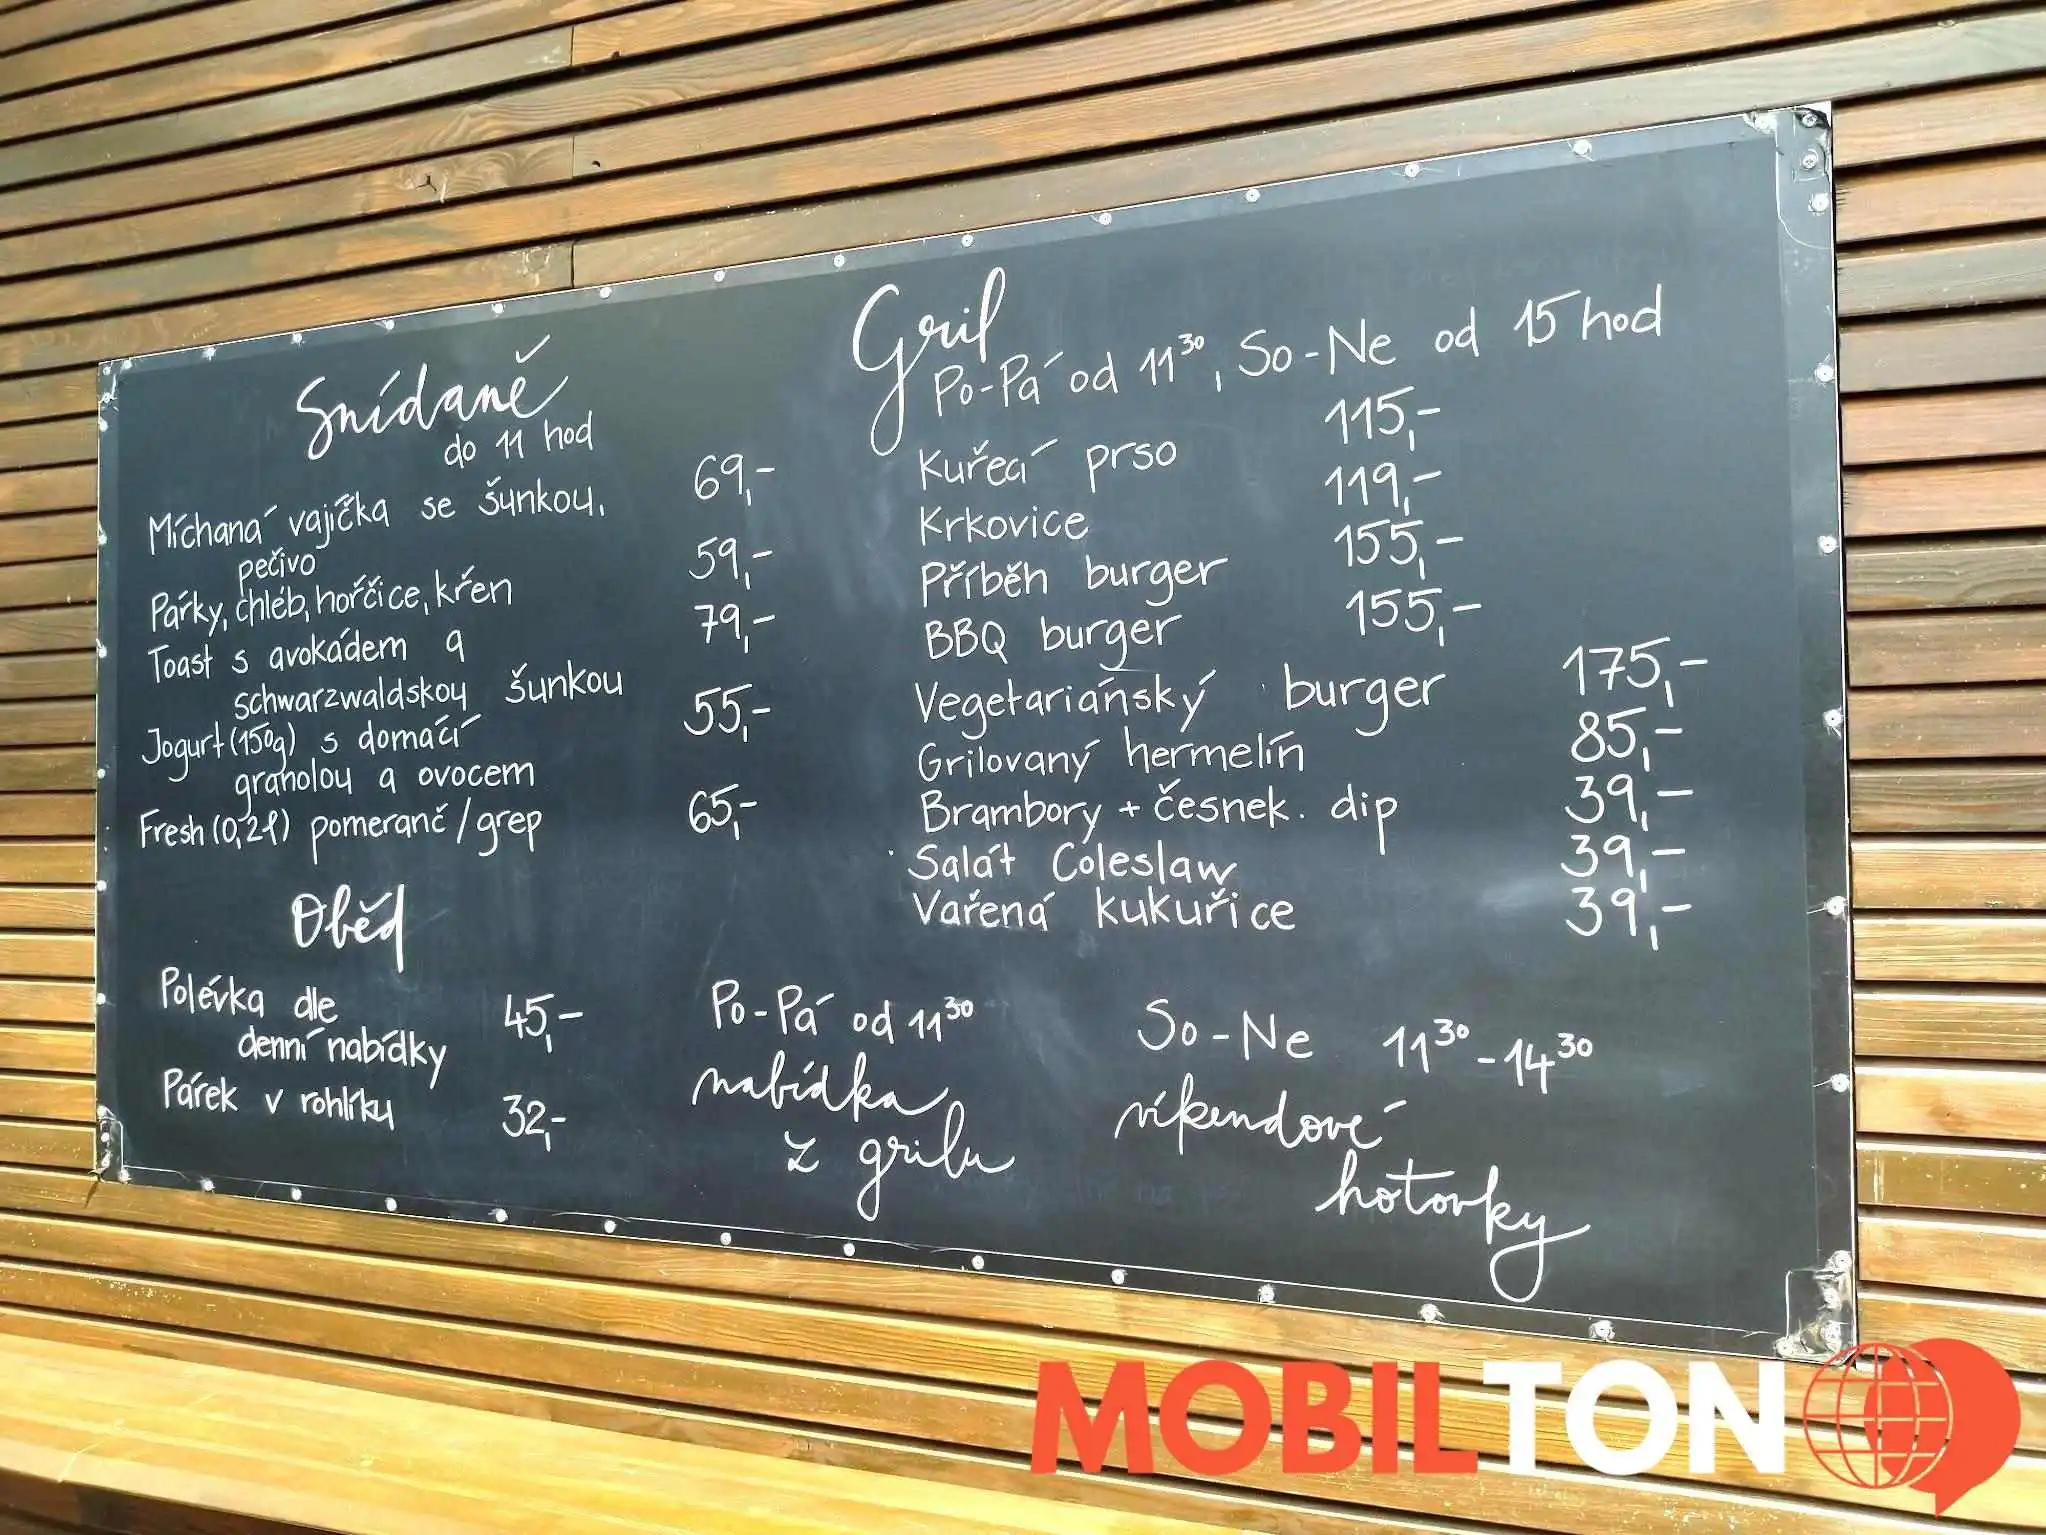 Snídaně
do 11 hod
Míchaná vajíčka se šunkou, 69,-
pečivo
Párky, chléb, hořčice, křen 59,-
Toast s avokádem a 79,-
schwarzwaldskou šunkou
Jogurt (150g) s domácí 55,-
granolou a ovocem
Fresh (0,2l) pomeranč/grep 65,-
Oběd
Polévka dle 45,-
denní nabídky
Párek v rohlíku 32,-
Gril
Po-Pá od 11³⁰, So-Ne od 15 hod
Kuřecí prso 115,-
Krkovice 119,-
Příběh burger 155,-
BBQ burger 155,-
Vegetariánský burger 175,-
Grilovaný hermelín 85,-
Brambory + česnek. dip 39,-
Salát Coleslaw 39,-
Vařená kukuřice 39,-
Po-Pá od 11³⁰
nabídka
z grilu
So-Ne 11³⁰-14³⁰
víkendové
hotovky
MOBILTON